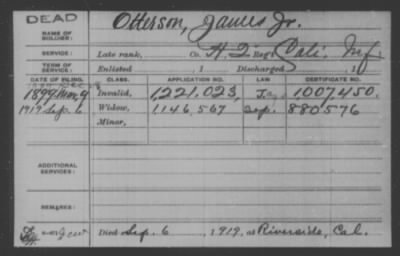 DEAD
NAME OF SOLDIER: Otterson, James Jr.
SERVICE: Late rank, Co. H. 2 Reg't Cali. Inf.
TERM OF SERVICE: Enlisted , 1 Discharged , 1
DATE OF FILING. CLASS. APPLICATION NO. LAW CERTIFICATE NO.
1899 9 Invalid, 1,221,023, 1007450.
1919 Sep. 6 Widow, 1,146,567 Sep. 880576
Minor,
ADDITIONAL SERVICES:
REMARKS:
Died Sep. 6, 1919, at Riverside, Cal.